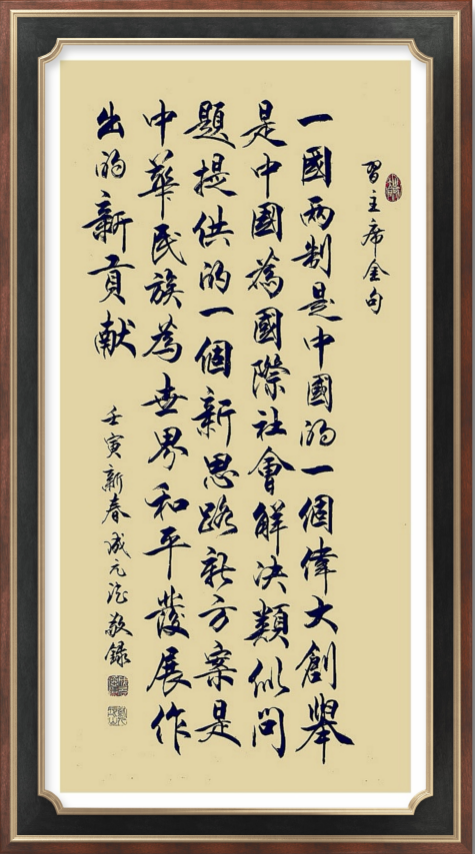 習主席金句
一國两制是中國的一個偉大創舉
是中國為國際社會解决類似问
題提供的一個新思路新方案是
中華民族為世界和平發展作
出的新貢献
壬寅新春成元敬録